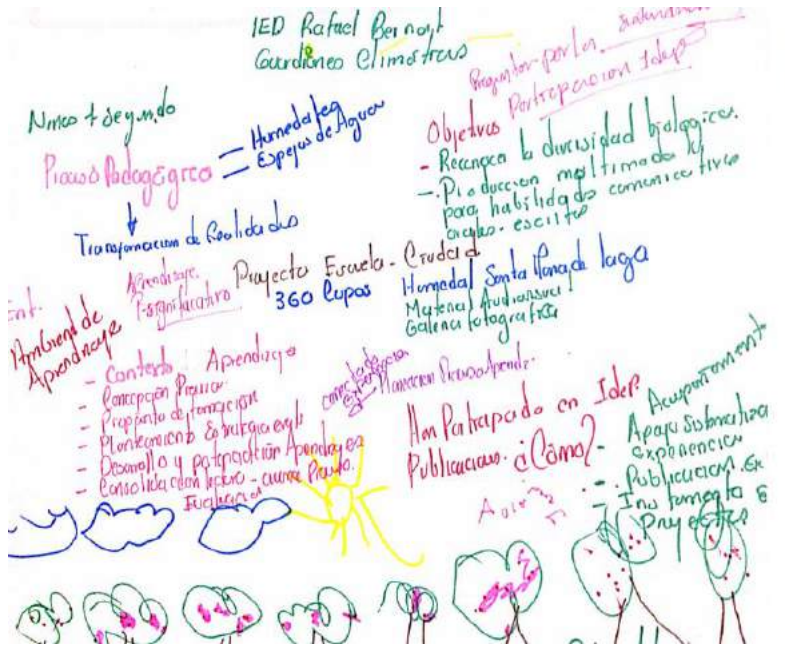 IED Rafael Bernal
Guardianes Climáticos
Preguntar por la
Participacion Idep
Niños + segundo
Humedales
Espejos de Agua
Proceso Pedagógico
Transformacion de Realidades
Objetivos
- Reconocer la diversidad biologica.
- Produccion multimedial
para habilidades comunicativas
orales - escritas
Aprendizaje
significativo
Proyecto Escuela - Ciudad
360 Lupas
Humedal Santa Maria de lago
Material Audiovisual
Galeria fotografica
Ambient de
Aprendizaje
- Contexto Aprendizaje
- Concepción Previa
- Proposito de formación
- Planteamiento Estrategia
- Desarrollo y
- Consolidación
Evaluacion
conectado
experiencia
Planeacion Proceso Aprendi.
Han Participado en Idep.
Publicaciones. ¿Cómo?
Acompañamient
- Apoyo Sistematiza
experiencias
- Publicacion. Ex
- Instrumento
Proyectos